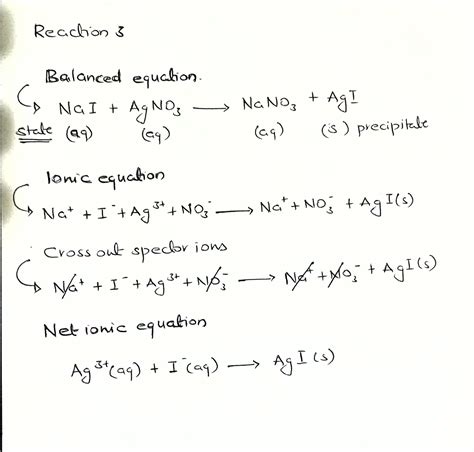 Reaction 3
Balanced equation.
NaI + AgNO₃ ⟶ NaNO₃ + AgI
state (aq) (aq) (aq) (s) precipitate
Ionic equation
Na⁺ + I⁻ + Ag³⁺ + NO₃⁻ ⟶ Na⁺ + NO₃⁻ + AgI(s)
Cross out spector ions
Na⁺ + I⁻ + Ag³⁺ + NO₃⁻ ⟶ Na⁺ + NO₃⁻ + AgI(s)
Net ionic equation
Ag³⁺(aq) + I⁻(aq) ⟶ AgI(s)